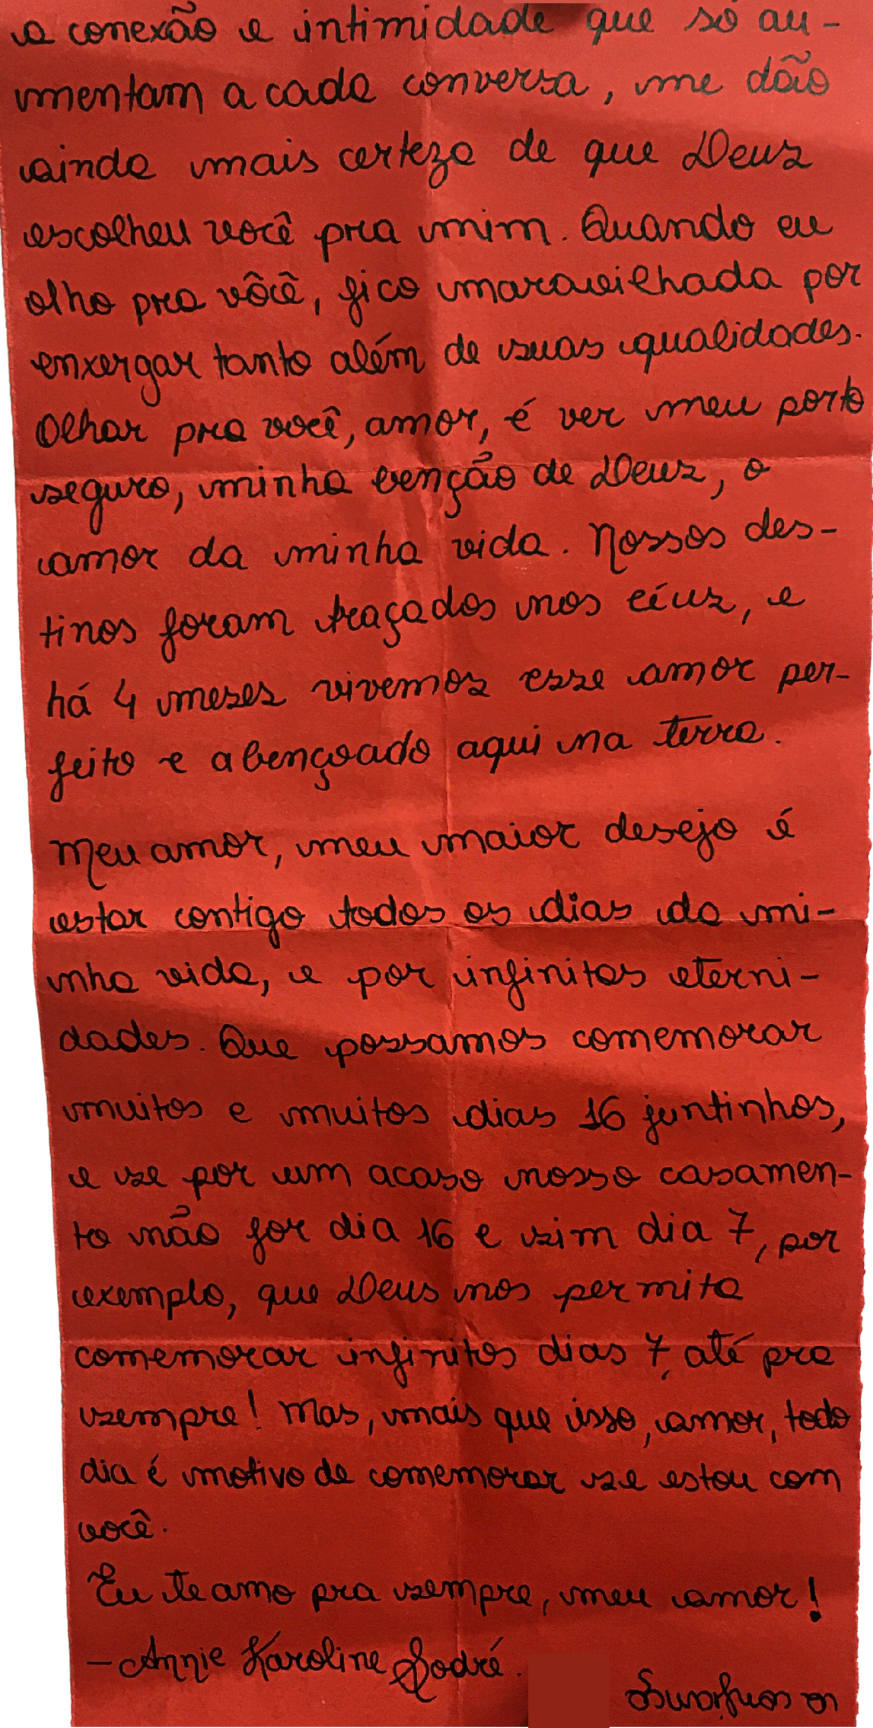 a conexão e intimidade que só au-
mentam a cada conversa, me dão
ainda mais certeza de que Deus
escolheu você pra mim. Quando eu
olho pra vôcê, fico maravilhada por
enxergar tanto além de suas qualidades.
Olhar pra você, amor, é ver meu porto
seguro, minha benção de Deus, o
amor da minha vida. Nossos des-
tinos foram traçados nos céus, e
há 4 meses vivemos esse amor per-
feito e abençoado aqui na terra.
Meu amor, meu maior desejo é
estar contigo todos os dias da mi-
nha vida, e por infinitas eterni-
dades. Que possamos comemorar
muitos e muitos dias 16 juntinhos,
e se por um acaso nosso casamen-
to não for dia 16 e sim dia 7, por
exemplo, que Deus nos permita
comemorar infinitos dias 7, até pra
sempre! Mas, mais que isso, amor, todo
dia é motivo de comemorar se estou com
você.
Eu te amo pra sempre, meu amor!
- Annie Karoline Sodré.